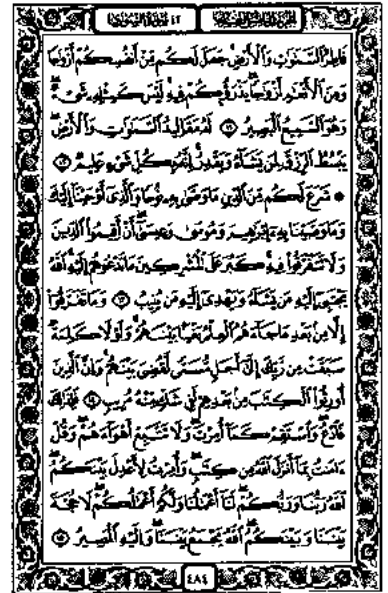 الجزء الخامس والعشرون ٤٢ سورة الشورى
فَاطِرُ ٱلسَّمَٰوَٰتِ وَٱلۡأَرۡضِۚ جَعَلَ لَكُم مِّنۡ أَنفُسِكُمۡ أَزۡوَٰجٗا
وَمِنَ ٱلۡأَنۡعَٰمِ أَزۡوَٰجٗا يَذۡرَؤُكُمۡ فِيهِۚ لَيۡسَ كَمِثۡلِهِۦ شَيۡءٞۖ
وَهُوَ ٱلسَّمِيعُ ٱلۡبَصِيرُ ١١ لَهُۥ مَقَالِيدُ ٱلسَّمَٰوَٰتِ وَٱلۡأَرۡضِۖ
يَبۡسُطُ ٱلرِّزۡقَ لِمَن يَشَآءُ وَيَقۡدِرُۚ إِنَّهُۥ بِكُلِّ شَيۡءٍ عَلِيمٞ ١٢
۞ شَرَعَ لَكُم مِّنَ ٱلدِّينِ مَا وَصَّىٰ بِهِۦ نُوحٗا وَٱلَّذِيٓ أَوۡحَيۡنَآ إِلَيۡكَ
وَمَا وَصَّيۡنَا بِهِۦٓ إِبۡرَٰهِيمَ وَمُوسَىٰ وَعِيسَىٰٓۖ أَنۡ أَقِيمُواْ ٱلدِّينَ
وَلَا تَتَفَرَّقُواْ فِيهِۚ كَبُرَ عَلَى ٱلۡمُشۡرِكِينَ مَا تَدۡعُوهُمۡ إِلَيۡهِۚ ٱللَّهُ
يَجۡتَبِيٓ إِلَيۡهِ مَن يَشَآءُ وَيَهۡدِيٓ إِلَيۡهِ مَن يُنِيبُ ١٣ وَمَا تَفَرَّقُوٓاْ
إِلَّا مِنۢ بَعۡدِ مَا جَآءَهُمُ ٱلۡعِلۡمُ بَغۡيَۢا بَيۡنَهُمۡۚ وَلَوۡلَا كَلِمَةٞ
سَبَقَتۡ مِن رَّبِّكَ إِلَىٰٓ أَجَلٖ مُّسَمّٗى لَّقُضِيَ بَيۡنَهُمۡۚ وَإِنَّ ٱلَّذِينَ
أُورِثُواْ ٱلۡكِتَٰبَ مِنۢ بَعۡدِهِمۡ لَفِي شَكّٖ مِّنۡهُ مُرِيبٖ ١٤ فَلِذَٰلِكَ
فَٱدۡعُۖ وَٱسۡتَقِمۡ كَمَآ أُمِرۡتَۖ وَلَا تَتَّبِعۡ أَهۡوَآءَهُمۡۖ وَقُلۡ
ءَامَنتُ بِمَآ أَنزَلَ ٱللَّهُ مِن كِتَٰبٖۖ وَأُمِرۡتُ لِأَعۡدِلَ بَيۡنَكُمُۖ
ٱللَّهُ رَبُّنَا وَرَبُّكُمۡۖ لَنَآ أَعۡمَٰلُنَا وَلَكُمۡ أَعۡمَٰلُكُمۡۖ لَا حُجَّةَ
بَيۡنَنَا وَبَيۡنَكُمُۖ ٱللَّهُ يَجۡمَعُ بَيۡنَنَاۖ وَإِلَيۡهِ ٱلۡمَصِيرُ ١٥
٤٨٤